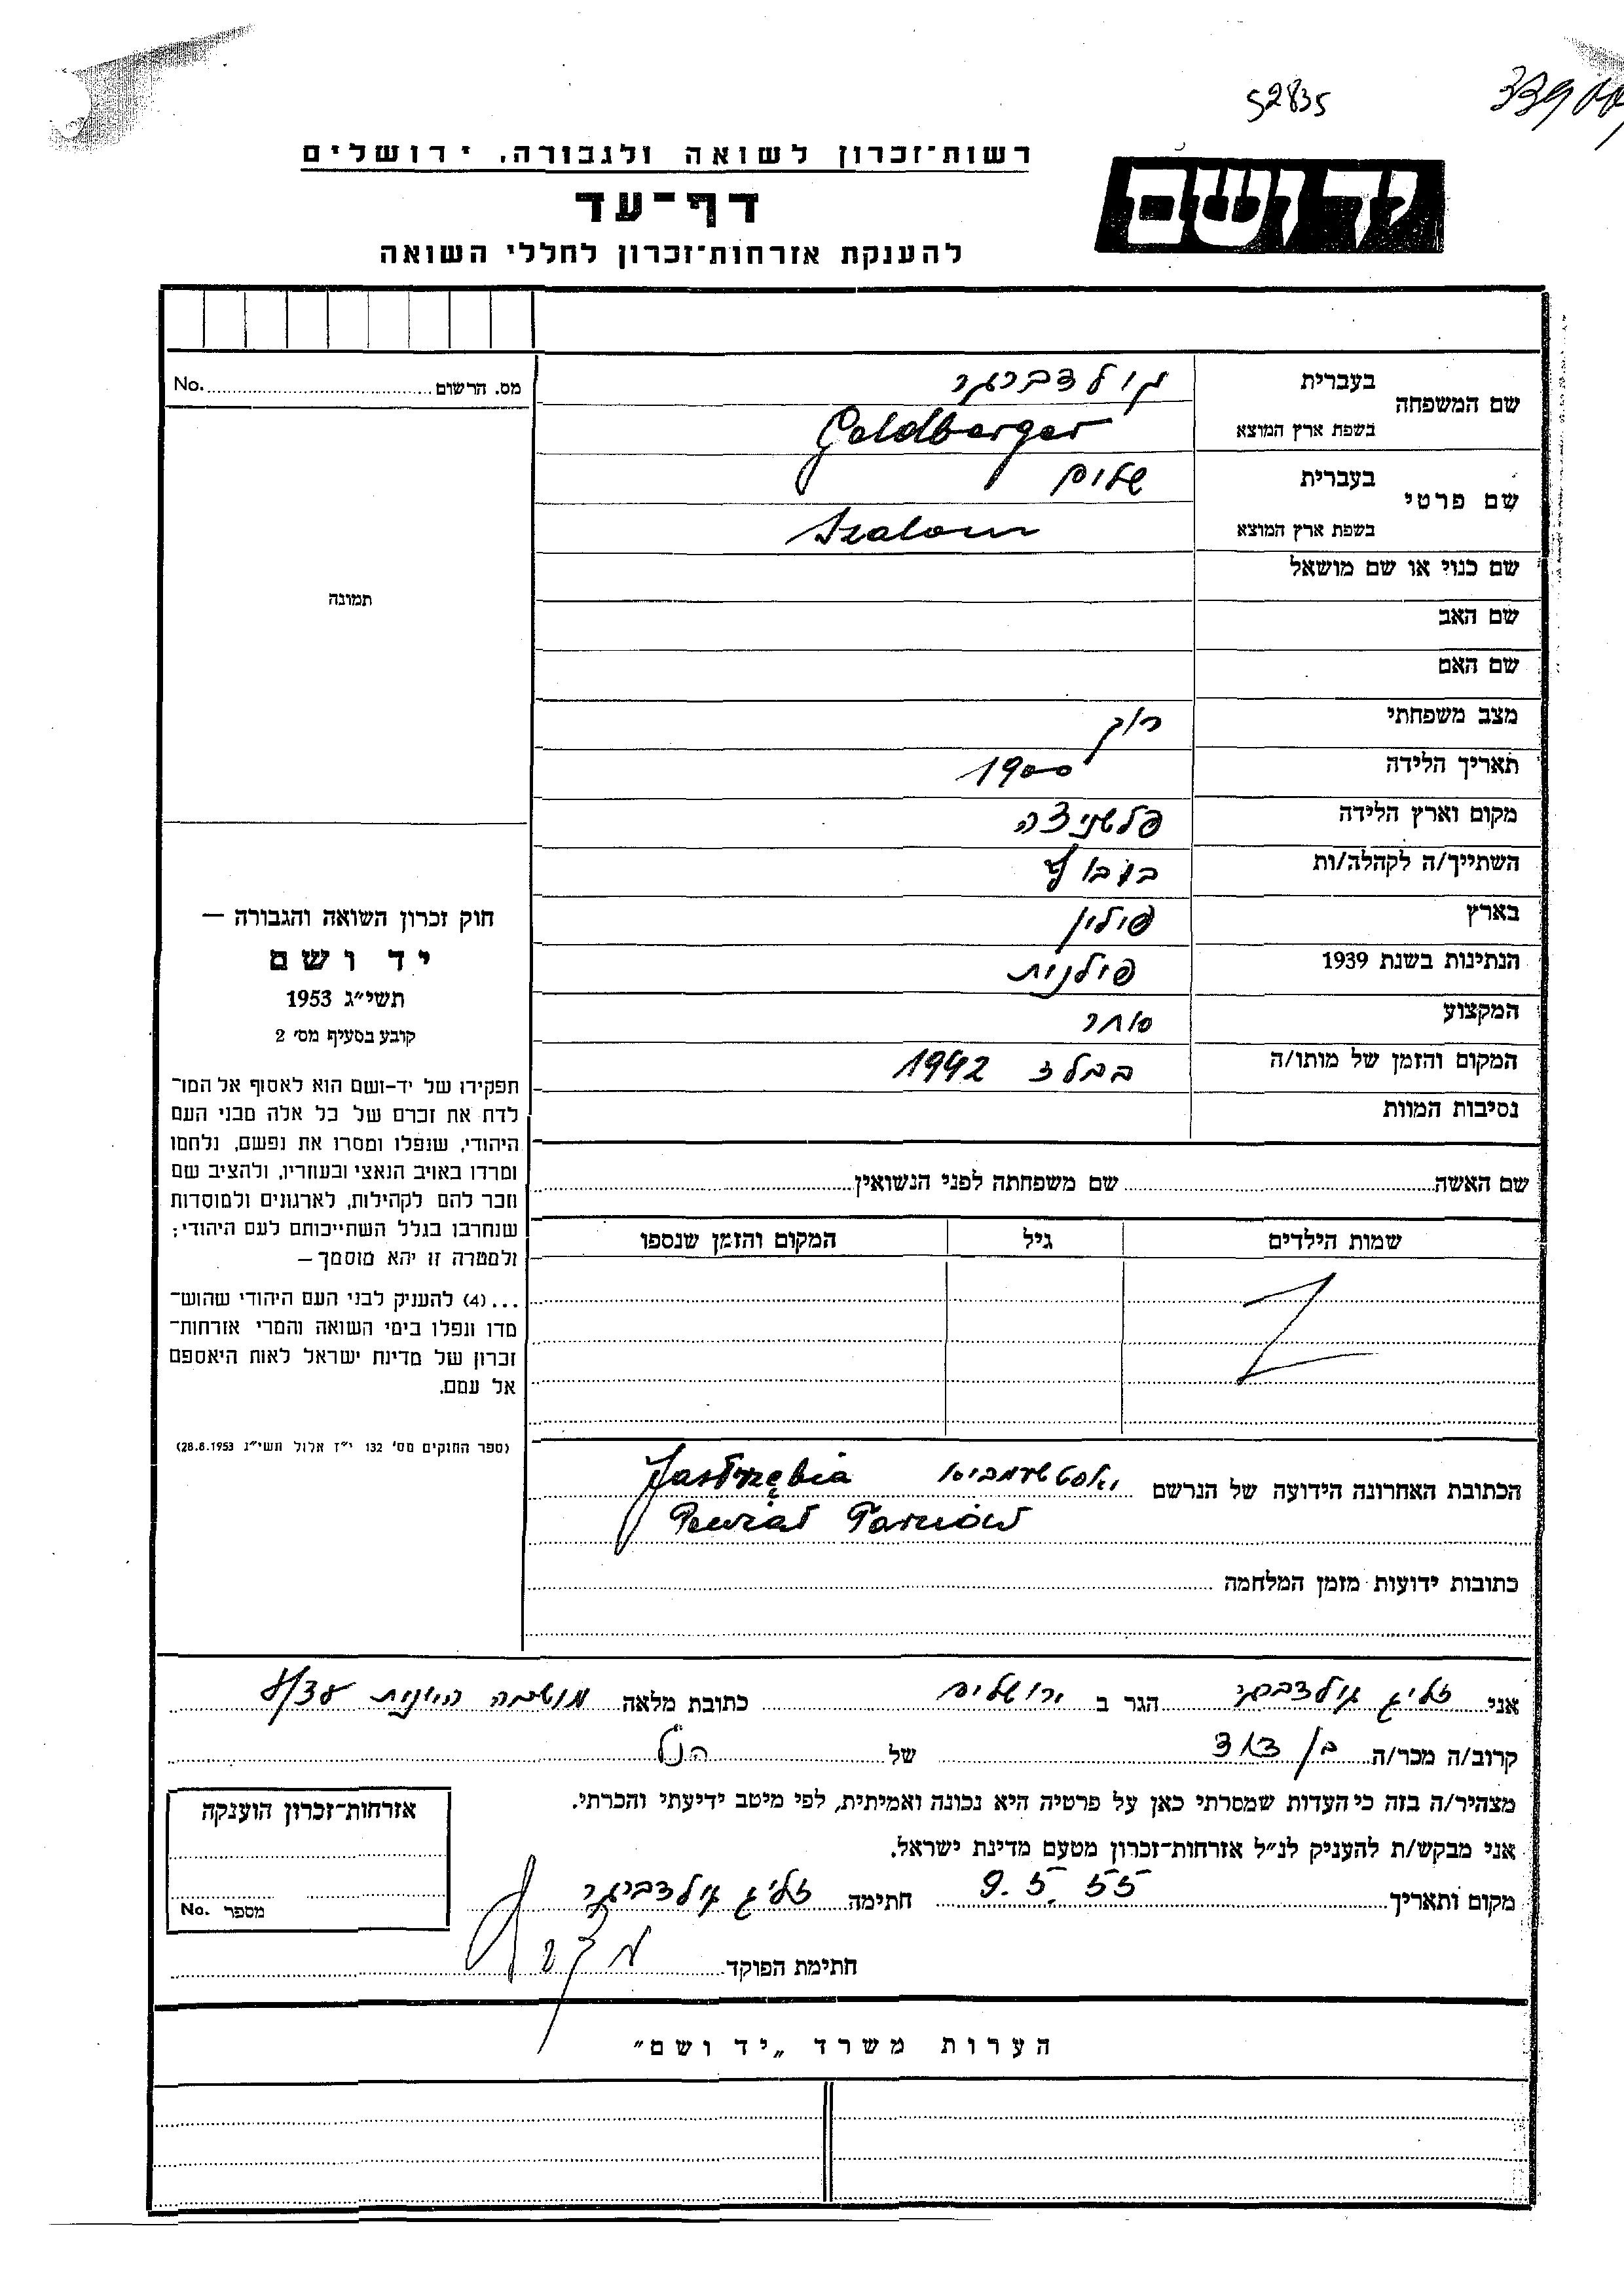 52835
רשות־זכרון לשואה ולגבורה, ירושלים
יד ושם
דף־עד
להענקת אזרחות־זכרון לחללי השואה
מס. הרשום No.
תמונה
שם המשפחה
בעברית גולדברגר
בשפת ארץ המוצא Goldberger
שם פרטי
בעברית שלום
בשפת ארץ המוצא Szalom
שם כנוי או שם מושאל
שם האב
שם האם
מצב משפחתי רוק
תאריך הלידה 1900
מקום וארץ הלידה פלשניצה
השתייך/ה לקהלה/ות
בארץ פולין
הנתינות בשנת 1939 פולנית
המקצוע סוחר
המקום והזמן של מותו/ה בבלז 1942
נסיבות המוות
שם האשה שם משפחתה לפני הנשואין
שמות הילדים גיל המקום והזמן שנספו
חוק זכרון השואה והגבורה —
יד ושם
תשי״ג 1953
קובע בסעיף מס׳ 2
תפקידו של יד-ושם הוא לאסוף אל המו־
לדת את זכרם של כל אלה מבני העם
היהודי, שנפלו ומסרו את נפשם, נלחמו
ומרדו באויב הנאצי ובעוזריו, ולהציב שם
וזכר להם לקהילות, לארגונים ולמוסדות
שנחרבו בגלל השתייכותם לעם היהודי;
ולמטרה זו יהא מוסמך —
...(4) להעניק לבני העם היהודי שהוש־
מדו ונפלו בימי השואה והמרי אזרחות־
זכרון של מדינת ישראל לאות היאספם
אל עמם.
(ספר החוקים מס׳ 132 י״ז אלול תשי״ג 28.8.1953)
הכתובת האחרונה הידועה של הנרשם יאסטשעמביא Jastrzębia
Powiat Tarnów
כתובות ידועות מזמן המלחמה
אני זליג גולדברגר הגר ב ירושלים כתובת מלאה מושבה היונית
קרוב/ה מכר/ה בן דוד של הנ״ל
מצהיר/ה בזה כי העדות שמסרתי כאן על פרטיה היא נכונה ואמיתית, לפי מיטב ידיעתי והכרתי.
אני מבקש/ת להעניק לנ״ל אזרחות־זכרון מטעם מדינת ישראל.
מקום ותאריך 9.5.55 חתימה זליג גולדברגר
חתימת הפוקד
אזרחות־זכרון הוענקה
מספר No.
הערות משרד „יד ושם״